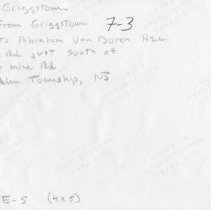 Griggstown
from Griggstown 7-3
to Abraham Van Doren Hse
Rd just south of
mine Rd
Township, NJ
E-5 (4x5)